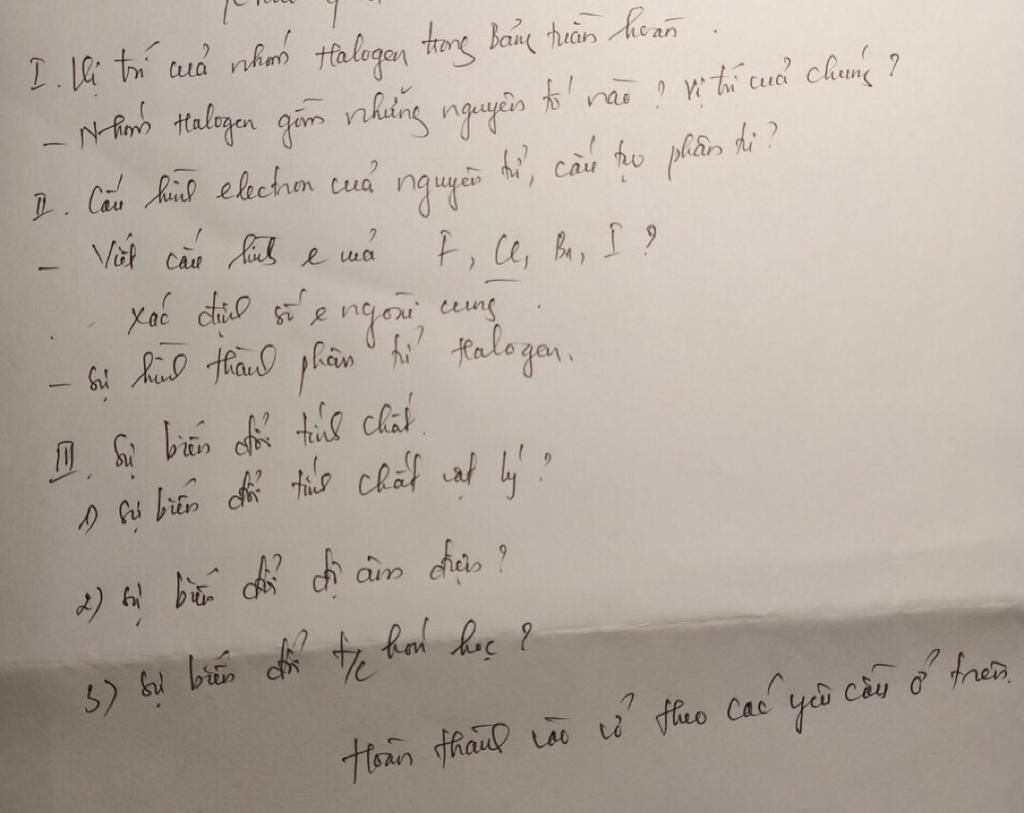 I. Vị trí của nhóm Halogen trong Bảng tuần hoàn.
- Nhóm Halogen gồm những nguyên tố nào? Vị trí của chúng?
II. Cấu hình electron của nguyên tử, cấu tạo phân tử?
- Viết cấu hình e của F, Cl, Br, I?
Xác định số e ngoài cùng.
- Sự hình thành phân tử Halogen.
III. Sự biến đổi tính chất.
1) Sự biến đổi tính chất vật lý?
2) Sự biến đổi độ âm điện?
3) Sự biến đổi t/c hoá học?
Hoàn thành vào vở theo các yêu cầu ở trên.